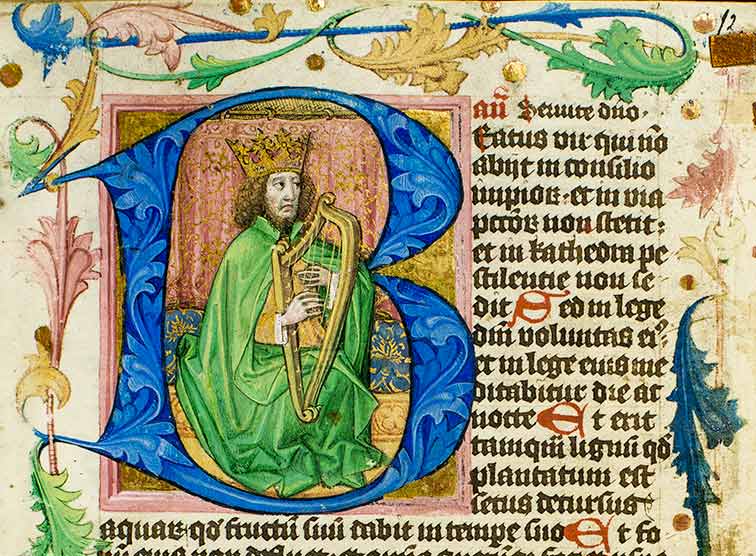 12
añ Seruite dño.
Beatus vir qui nō
abijt in consilio
impior. et in via
pctōr non stetit:
et in kathedra pe
stilentie non se
dit Sed in lege
dm̄ voluntas ei⁹
et in lege eius me
ditabitur die ac
nocte Et erit
tamqm̄ lignū qd̄
plantatum est
secus decursus
aquar qd̄ fructū suū dabit in tempe suo Et fo